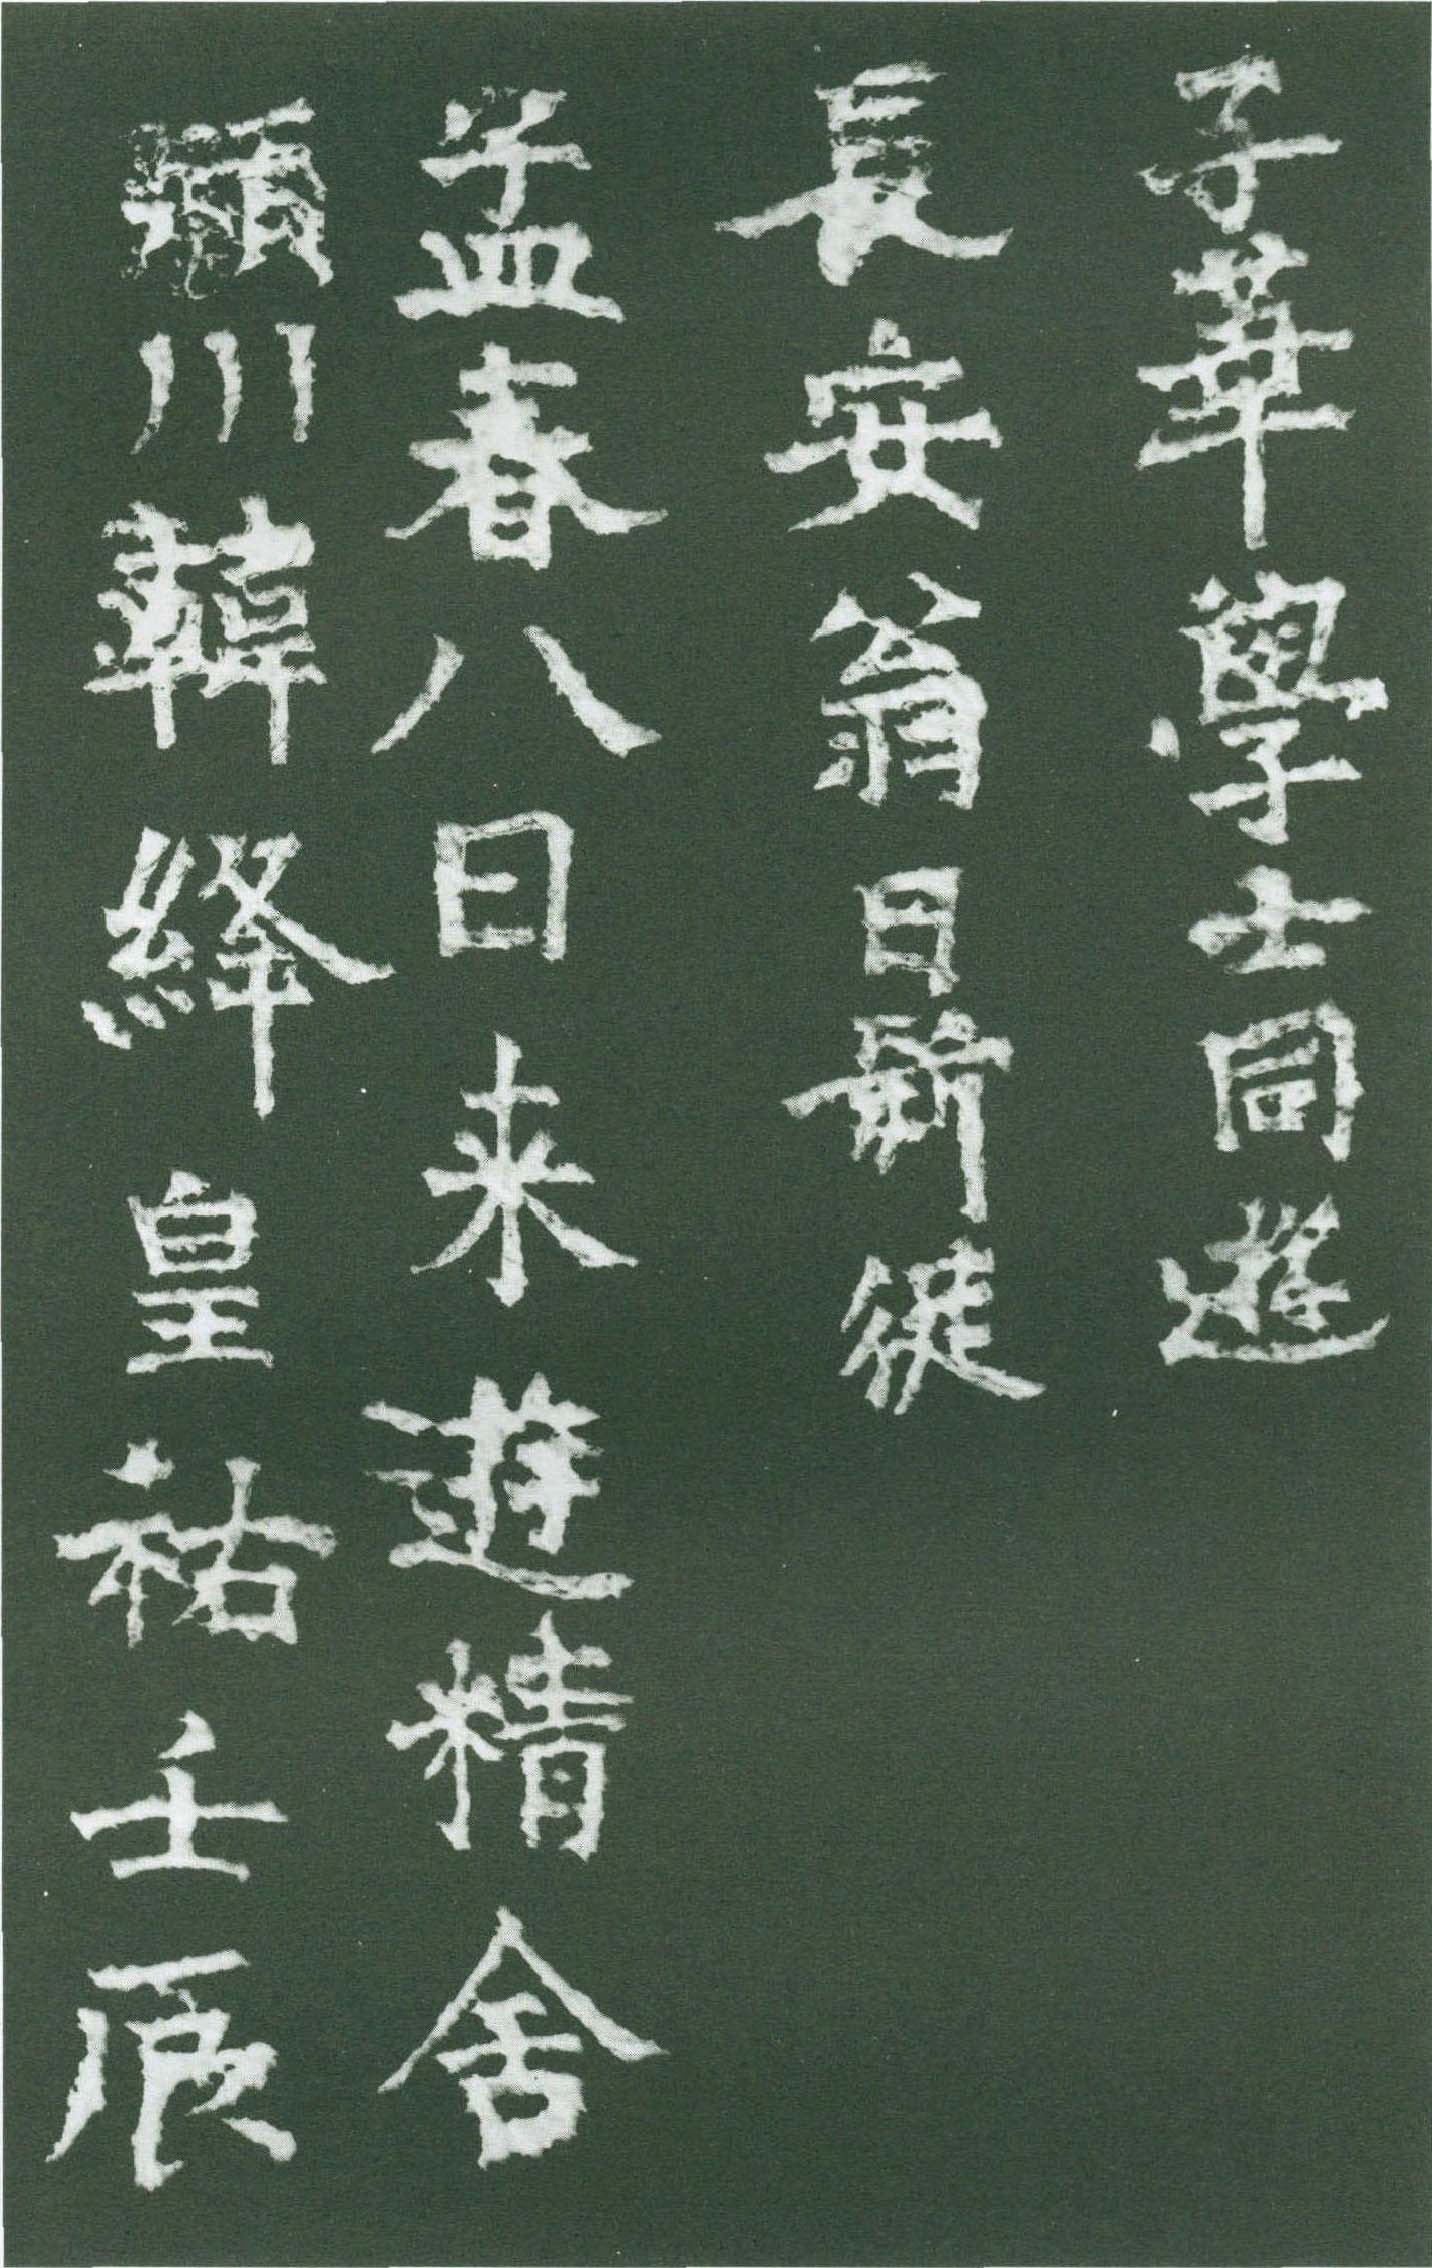 潁川韓絳皇祐壬辰
孟春八日来遊精舍
長安翁日新從
子華學士同遊